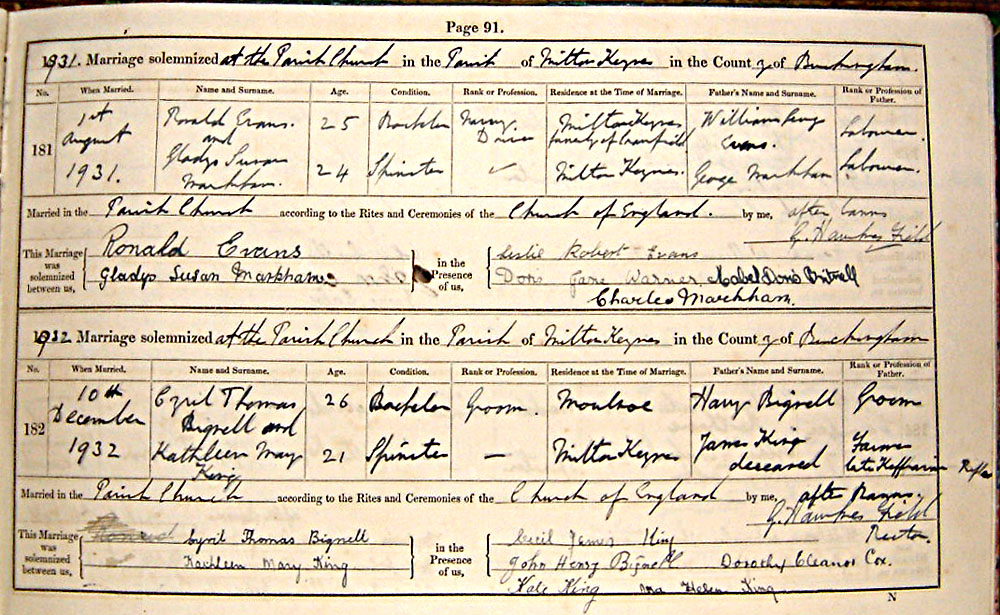 Page 91.
1931. Marriage solemnized at the Parish Church in the Parish of Milton Keynes in the County of Buckingham.
No. When Married. Name and Surname. Age. Condition. Rank or Profession. Residence at the Time of Marriage. Father's Name and Surname. Rank or Profession of Father.
181 1st August 1931. Ronald Evans. and 25 Bachelor Milton Keynes William Evans. Labourer.
Gladys Susan Markham. 24 Spinster Milton Keynes. George Markham Labourer.
Married in the Parish Church according to the Rites and Ceremonies of the Church of England. by me, after banns
G. Hawkes Field
This Marriage was solemnized between us, Ronald Evans in the Presence of us, Leslie Robert Evans
Gladys Susan Markham Doris Jane Warner. Mabel Doris Britnell
Charles Markham.
1932 Marriage solemnized at the Parish Church in the Parish of Milton Keynes in the County of Buckingham
No. When Married. Name and Surname. Age. Condition. Rank or Profession. Residence at the Time of Marriage. Father's Name and Surname. Rank or Profession of Father.
182 10th December 1932 Cyril Thomas Bignell and 26 Bachelor Groom. Moulsoe Harry Bignell Groom
Kathleen May King 21 Spinster — Milton Keynes James King deceased Farmer late
Married in the Parish Church according to the Rites and Ceremonies of the Church of England by me, after Banns.
G. Hawkes Field
Rector.
This Marriage was solemnized between us, Cyril Thomas Bignell in the Presence of us, Cecil James King
Kathleen May King John Henry Bignell Dorothy Eleanor Cox.
Kate King Helen King
N